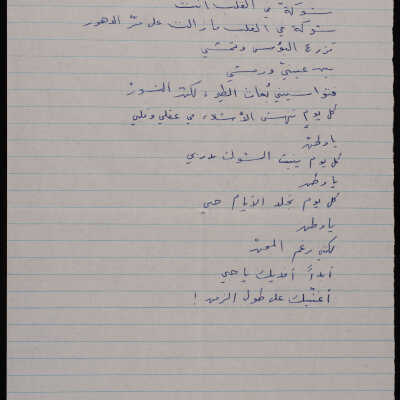 شوكة في القلب أنت
شوكة في القلب مازالت على مرّ الدهور
تزرع البؤس وتمشي
بين عيني ورمشي
كل يوم نهش الأشلاء في عقلي وقلبي
يا وطن
كل يوم ينبت الشوك بدربي
يا وطن
كل يوم تجلد الأيام حبي
يا وطن
لكني رغم المحن
أبداً أفديك يا حبي
أغنيك على طول الزمن !